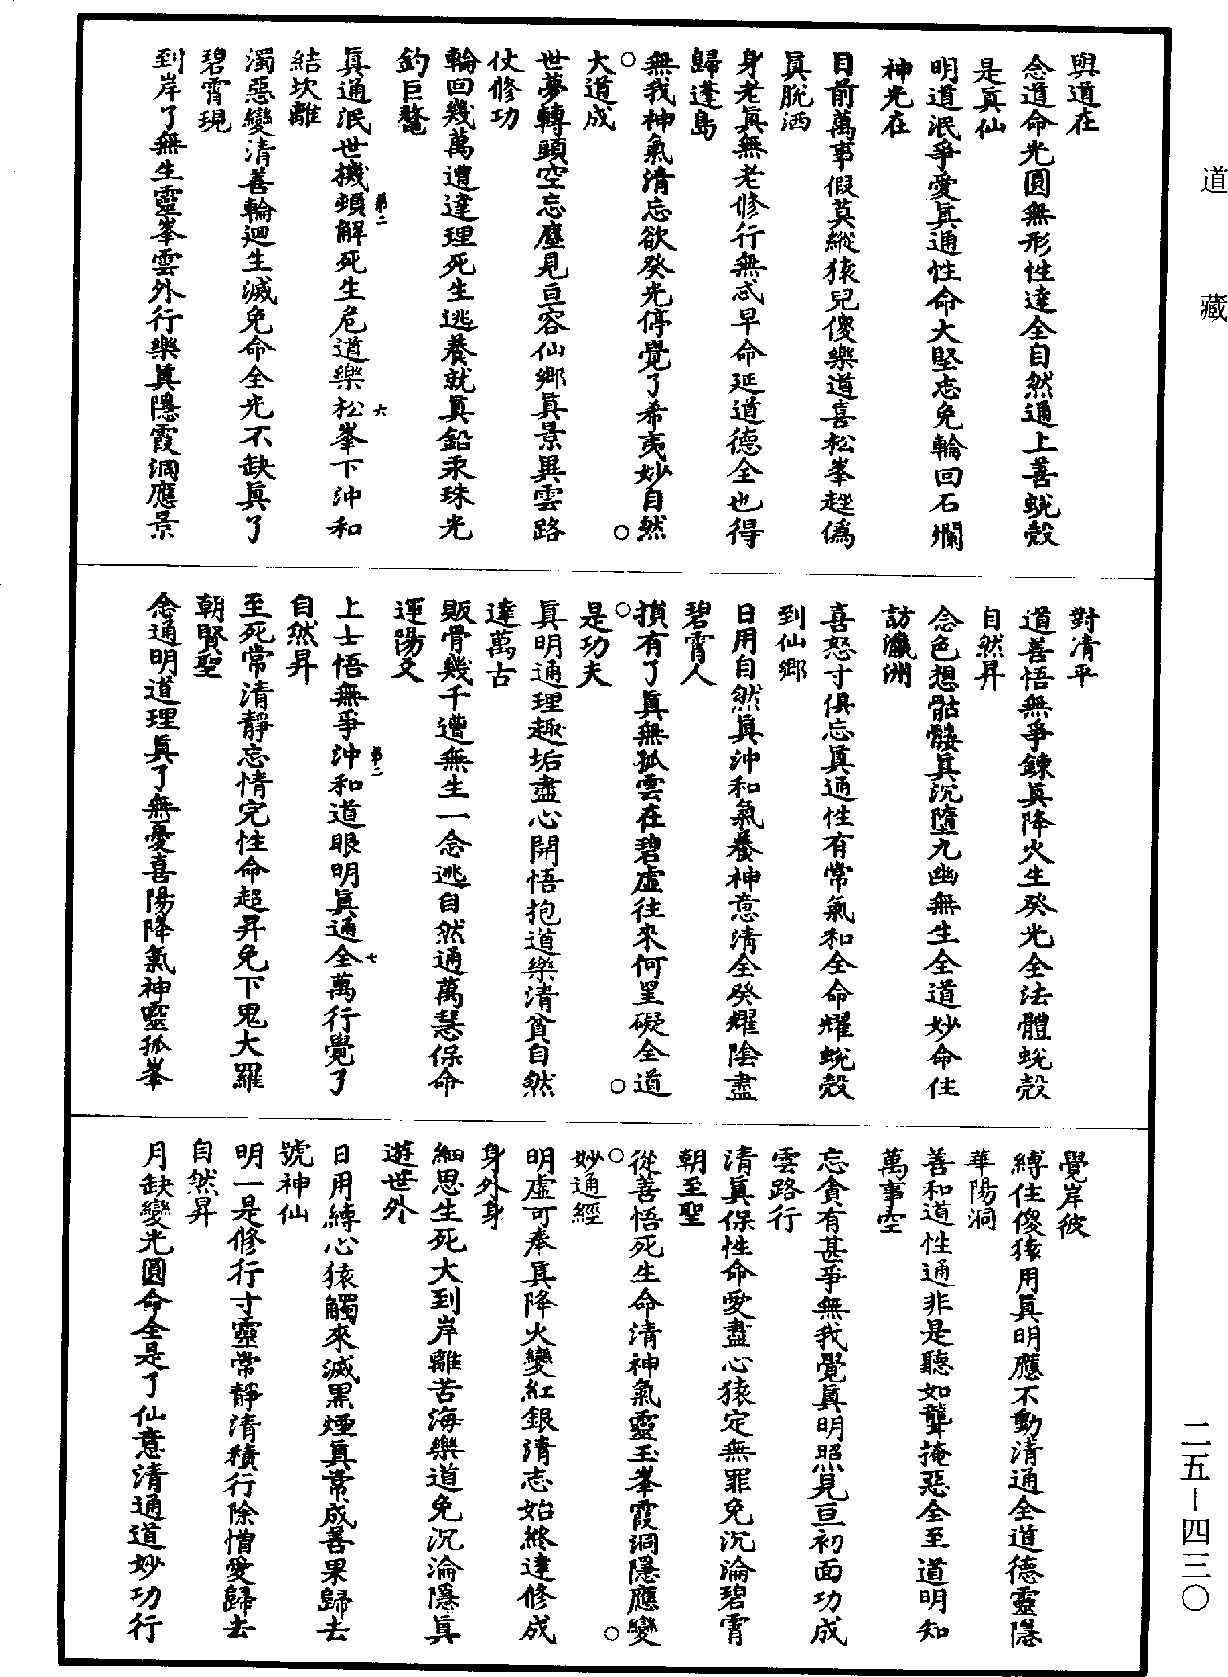 道藏
與道在
念道命光圓無形性達全自然通上善蛻殼
是真仙
明道泯爭愛真通性命大堅志免輪回石爛
神光在
目前萬事假莫縱猿兒傻樂道喜松峯趓僞
真脫洒
身老真無老修行無忒早命延道德全也得
歸蓬島
無我神氣清忘欲癸光停覺了希夷妙自然
大道成
世夢轉頭空忘塵見亘容仙鄉真景異雲路
仗修功
輪回幾萬遭達理死生逃養就真鉛汞珠光
釣巨鼇
真通泯世機頓解死生危道樂松峯下沖和
第二 六
結坎離
濁惡變清善輪迴生滅免命全光不缺真了
碧霄現
到岸了無生靈峯雲外行樂真隱霞洞應景
對清平
道善悟無爭鍊真降火生癸光全法體蛻殼
自然昇
念色想骷髏真沉墮九幽無生全道妙命住
訪瀛洲
喜怒寸俱忘真通性有常氣和全命耀蛻殼
到仙鄉
日用自然真沖和氣養神意清全癸耀陰盡
碧霄人
損有了真無孤雲在碧虛往來何罣礙全道
是功夫
真明通理趣垢盡心開悟抱道樂清貧自然
達萬古
販骨幾千遭無生一念逃自然通萬慧保命
運陽爻
上士悟無爭沖和道眼明真通全萬行覺了
第二 七
自然昇
至死常清靜忘情完性命超昇免下鬼大羅
朝賢聖
念通明道理真了無憂喜陽降氣神靈孤峯
覺岸彼
縛住傻猿用真明應不動清通全道德靈隱
華陽洞
善和道性通非是聽如聾掩惡全至道明知
萬事空
忘貪有甚爭無我覺真明照見亘初面功成
雲路行
清真保性命愛盡心猿定無罪免沉淪碧霄
朝至聖
從善悟死生命清神氣靈玉峯霞洞隱應變
妙通經
明虛可奉真降火變紅銀清志始終達修成
身外身
細思生死大到岸離苦海樂道免沉淪隱真
遊世外
日用縛心猿觸來滅黑煙真常成善果歸去
號神仙
明一是修行寸靈常靜清積行除憎愛歸去
自然昇
月缺變光圓命全是了仙意清通道妙功行
二五—四三〇